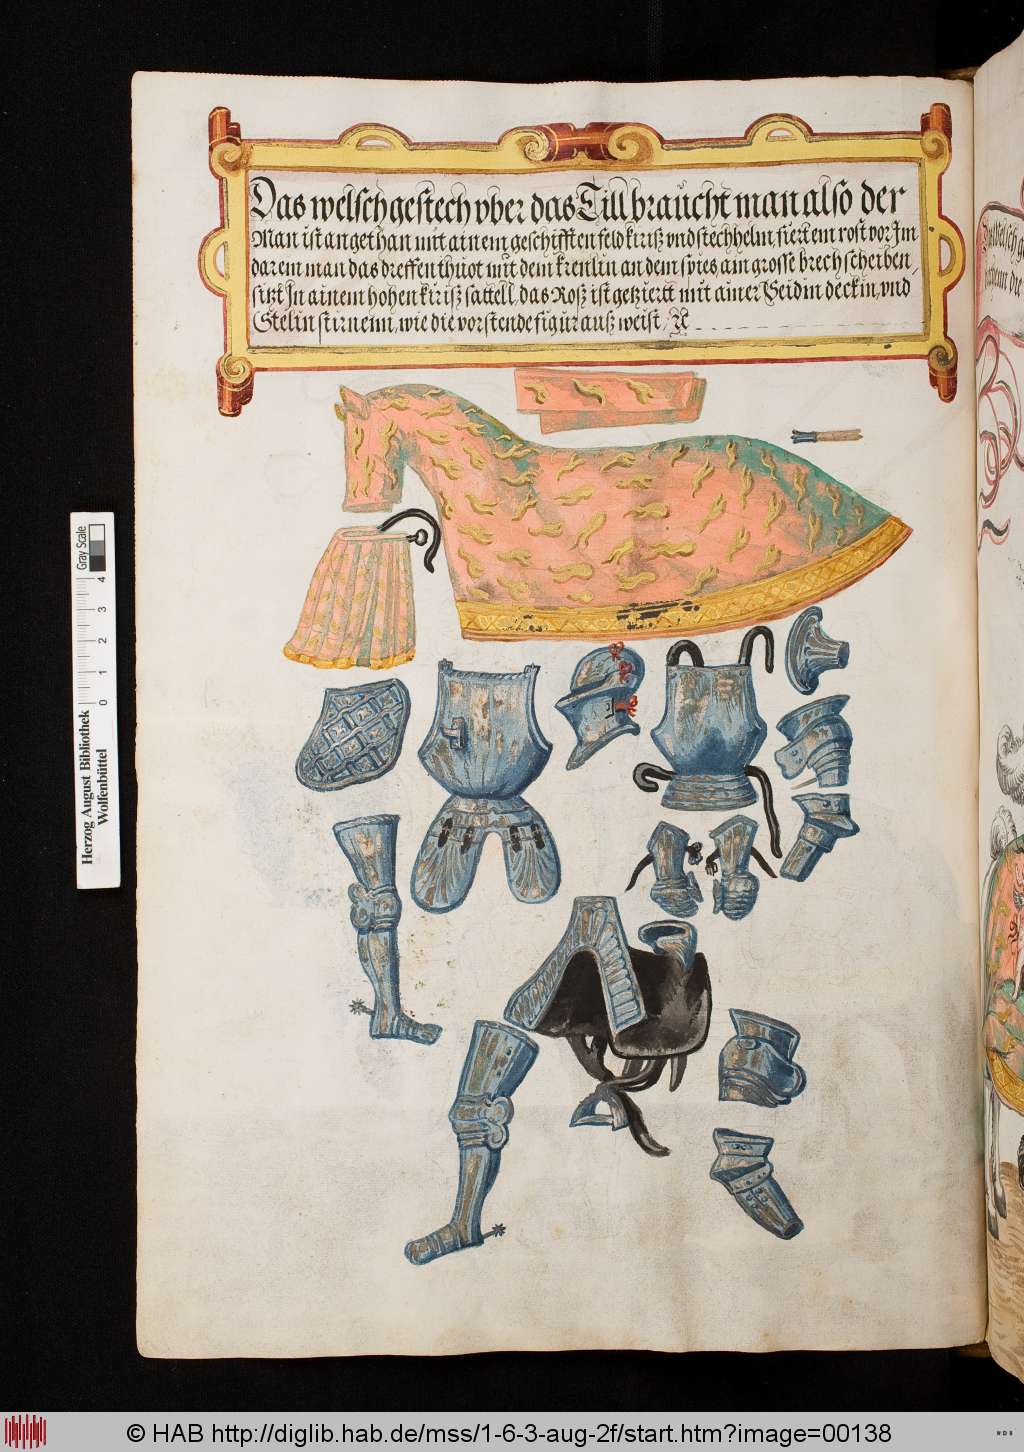 Das welsch gestech vber das Till braucht man also der
Man ist angethan mit ainem geschifften feld kiriß vnd stechhelm, fiert ein rost vor Im
darein man das dreffen thuot mit dem krenlin an dem spies, ain grosse brechscheiben,
sitzt In ainem hohen kiriß sattell, das Roß ist getziertt mit ainer Seidin deckin, vnd
Stelin stirnenn, wie die vorstende figur auß weist,
welsch
die
Herzog August Bibliothek
Wolfenbüttel
0 1 2 3 4
Gray Scale
© HAB http://diglib.hab.de/mss/1-6-3-aug-2f/start.htm?image=00138
WDB